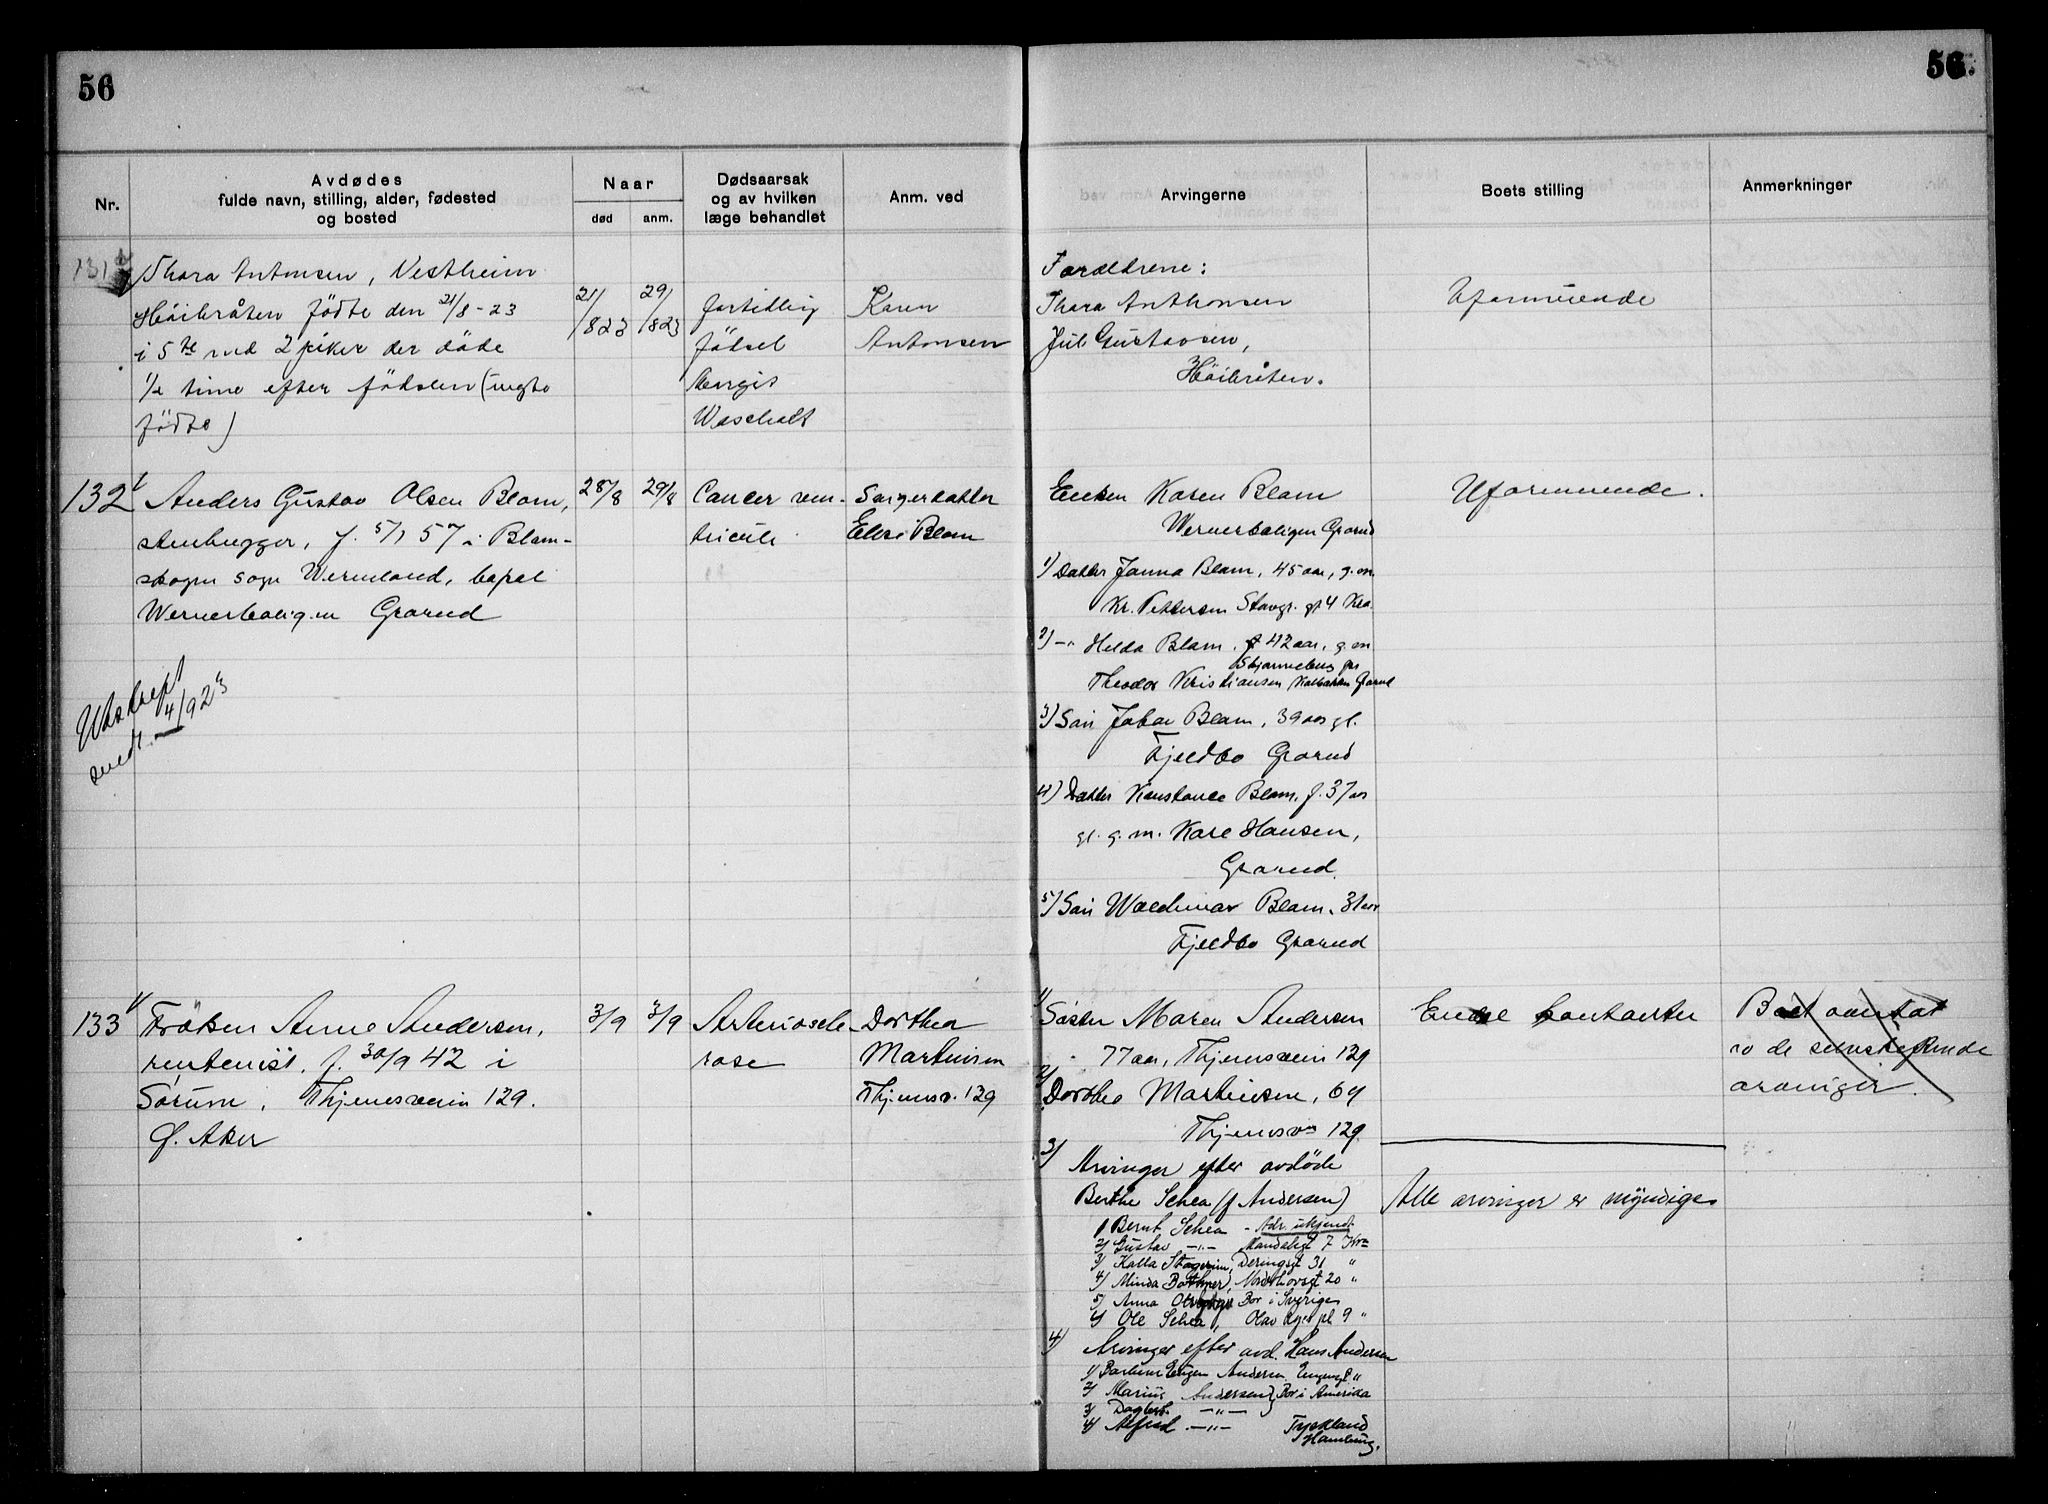 56
56.
Nr.
Avdødes
fulde navn, stilling, alder, fødested
og bosted
Naar
død
anm.
Dødsaarsak
og av hvilken
læge behandlet
Anm. ved
Arvingerne
Boets stilling
Anmerkninger
131
Thora Antonsen, Vestheim
Höibråten födte den 21/8-23
i 5te md 2 piker der döde
1/2 time efter födselen (uegte
födte)
21/8 23
29/8 23
fortidlig
födsel
Margit
Karen
Antonsen
Forældrene:
Thora Anthonsen
Jul Gustavsen,
Höibråten.
Uformuende
132
Anders Gustav Olsen Blom,
stenhugger, f. 5/1 57 i Blom-
skogen sogn Wermland, bopel
Wernerboligen Grorud
28/8
29/8
Cancer ven-
triculi
Datter
Blom
Enken Karen Blom
Wernerboligen Grorud
1) Datter Janna Blom, 45 aar, g. m.
Kr. Pettersen Stavgr. gt 4 Kra.
2) -"- Helda Blom, 42 aar, g. m
Theodor Kristiansen Grorud
3) Søn Johan Blom, 39 aar gl.
Fjeldbo Grorud
4) Datter Konstance Blom, f. 37 aar
gl. g. m. Kare Hansen,
Grorud.
5) Søn Waldemar Blom, 31 aar
Fjeldbo Grorud
Uformuende.
Utskrift
sendt. 4/9 23
133
Fröken Anne Andersen,
rentenist, f. 30/9 42 i
Sørum, Thjemsveien 129.
Ø. Aker
3/9
3/9
Arterioscle-
rose
Dorthea
Martinsen
Thjemsv. 129
1) Søster Maren Andersen
77 aar, Thjemsveien 129
2) Dorthea Martinsen, 69
Thjemsvn 129
3) Arvinger efter avdöde
Berthe Schea (f Andersen)
1) Bernt Schea - Adr. ukjendt.
2) Gustav -"- Mandalsgt 7 Kra
3) Kalla 31 "
4) Minda 20 "
5) Anna Bor i Sverige
6) Ole Schea, Olav pl 9 "
4) Arvinger efter avd. Hans Andersen
1) Eugen Andersen "
2) Marius Andersen } Bor i Amerika
3) Dagbert -"-
4) Alfred -"- Tyskland
Hamburg.
Alle arvinger er myndige
Boet
av de
arvinger.